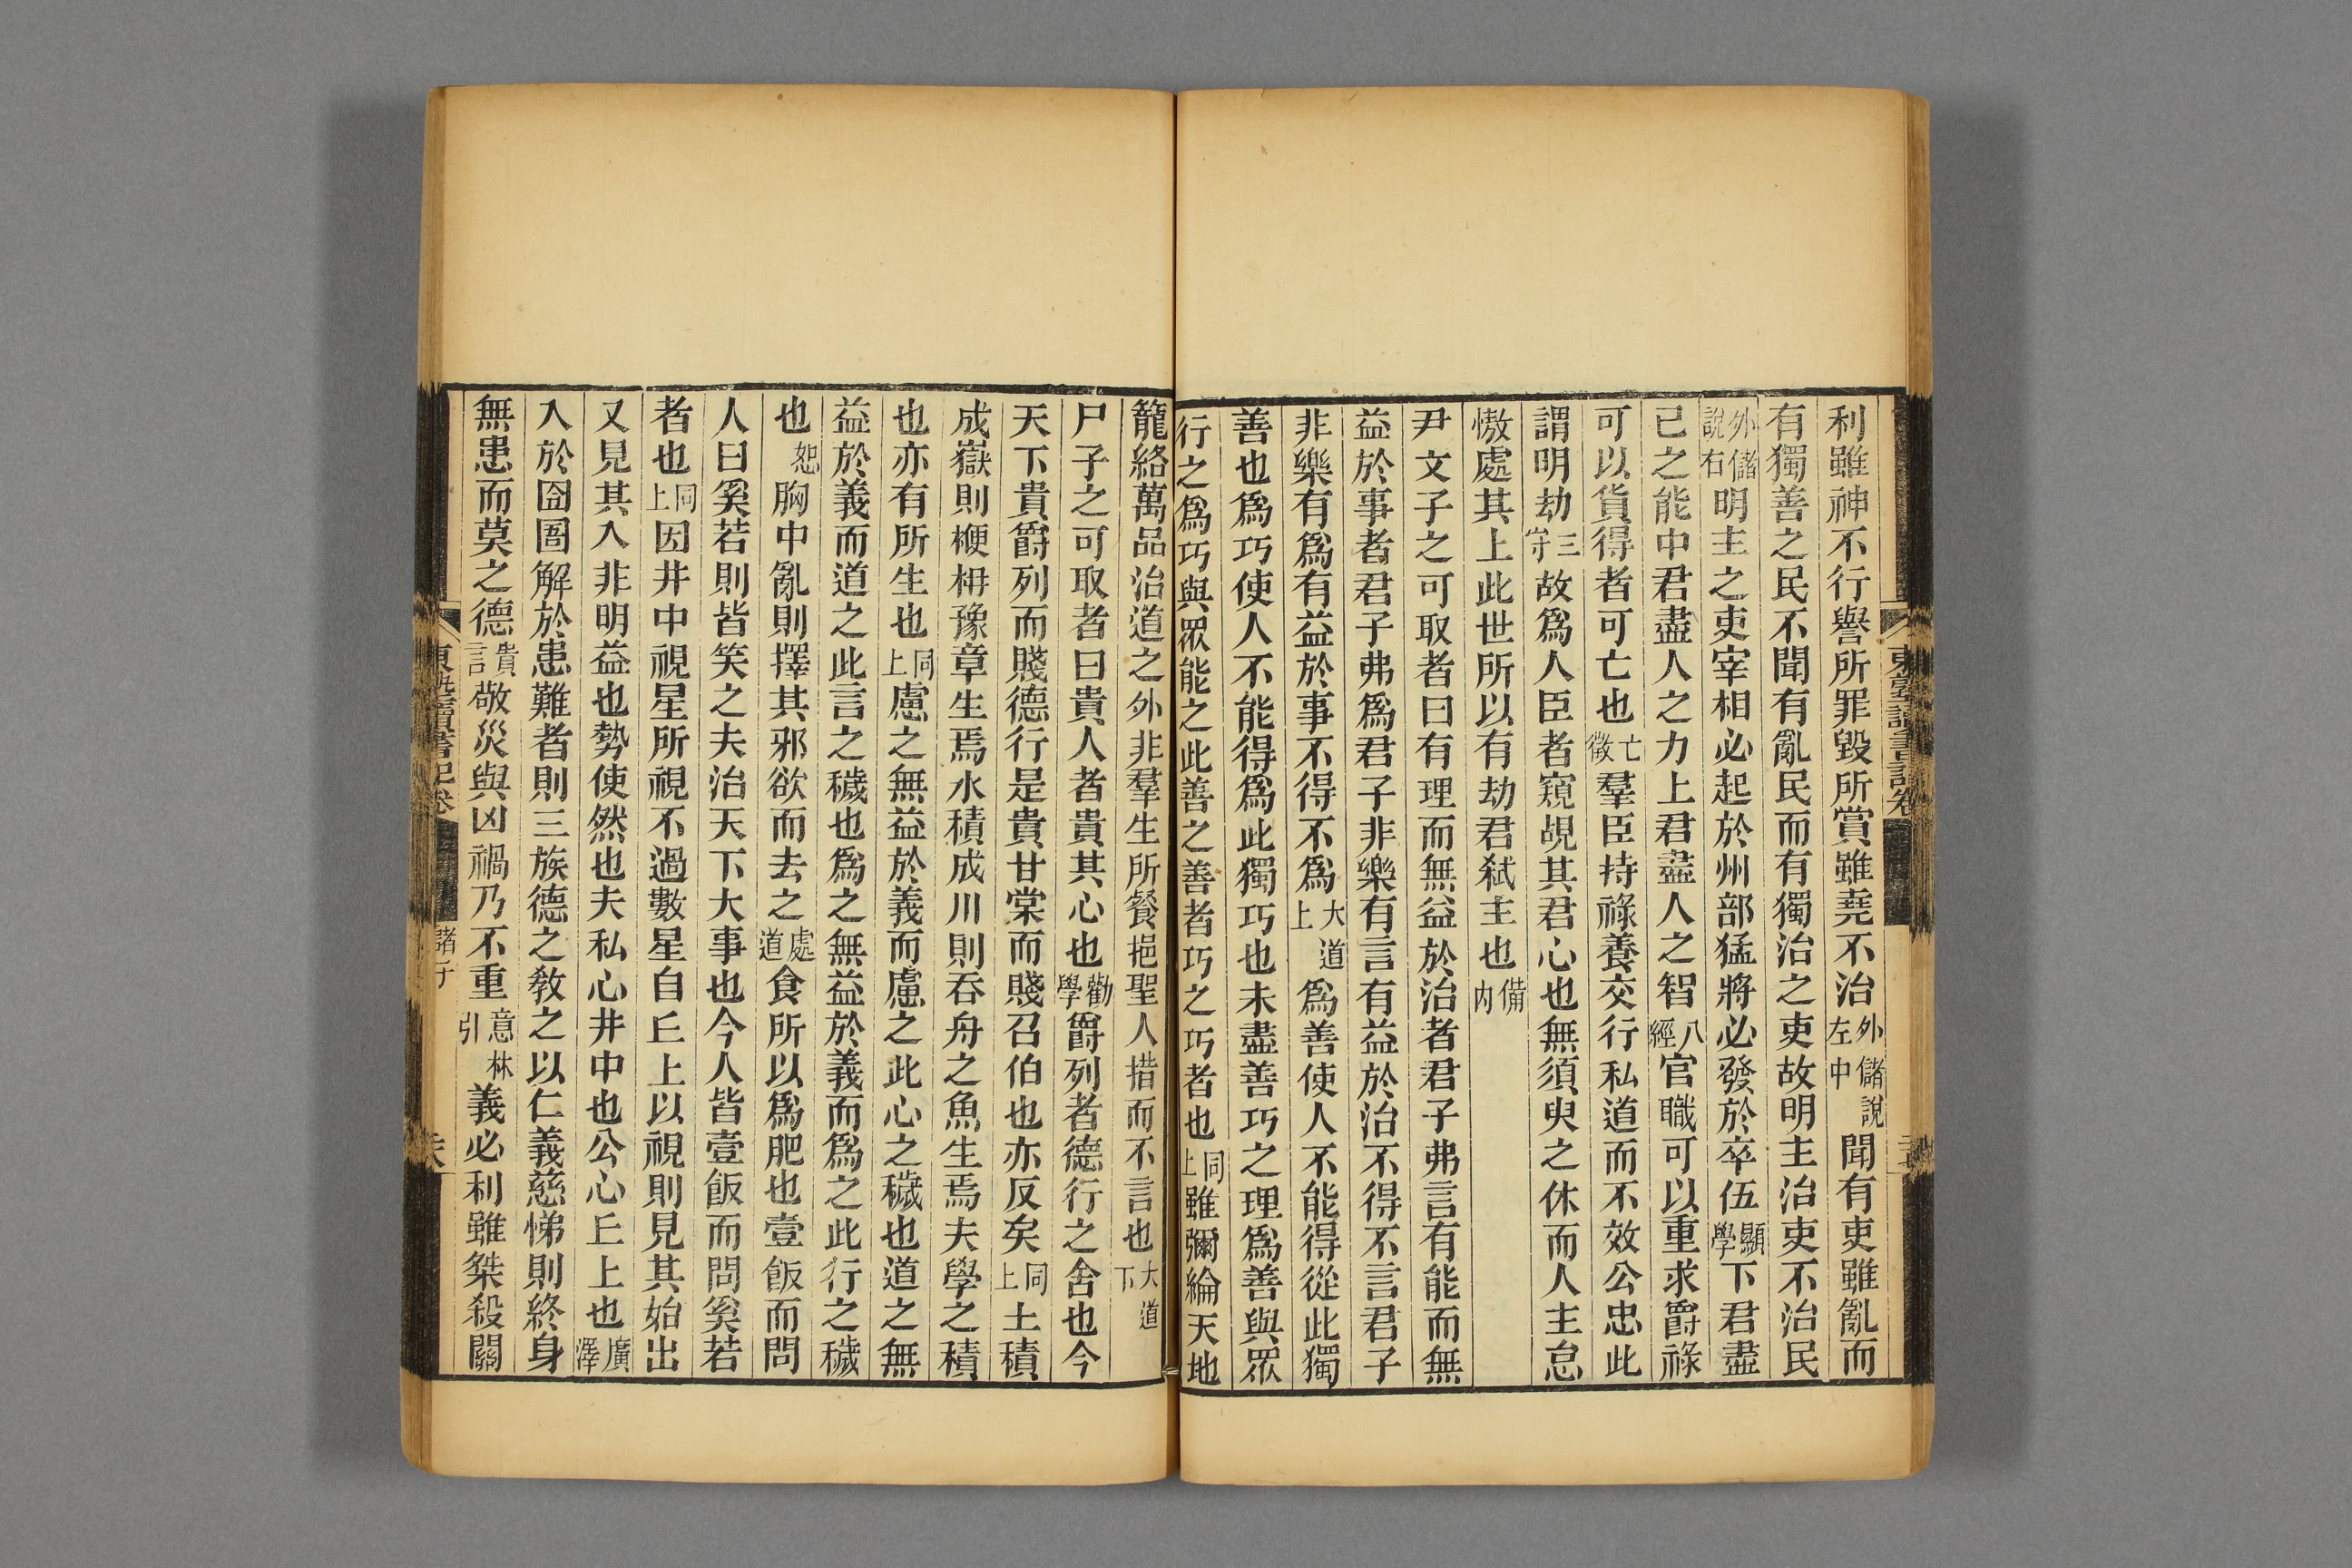 利雖神不行譽所罪毀所賞雖堯不治外儲說左中聞有吏雖亂而
有獨善之民不聞有亂民而有獨治之吏故明主治吏不治民
外儲說右明主之吏宰相必起於州部猛將必發於卒伍顯學下君盡
己之能中君盡人之力上君盡人之智八經官職可以重求爵祿
可以貨得者可亡也亡徵羣臣持祿養交行私道而不效公忠此
謂明劫三守故爲人臣者窺覘其君心也無須臾之休而人主怠
慠處其上此世所以有劫君弒主也備內
尹文子之可取者曰有理而無益於治者君子弗言有能而無
益於事者君子弗爲君子非樂有言有益於治不得不言君子
非樂有爲有益於事不得不爲大道上爲善使人不能得從此獨
善也爲巧使人不能得爲此獨巧也未盡善巧之理爲善與眾
行之爲巧與眾能之此善之善者巧之巧者也同上雖彌綸天地
籠絡萬品治道之外非羣生所餐挹聖人措而不言也大道下
尸子之可取者曰貴人者貴其心也勸學爵列者德行之舍也今
天下貴爵列而賤德行是貴甘棠而賤召伯也亦反矣同上土積
成嶽則楩枏豫章生焉水積成川則吞舟之魚生焉夫學之積
也亦有所生也同上慮之無益於義而慮之此心之穢也道之無
益於義而道之此言之穢也爲之無益於義而爲之此行之穢
也恕胸中亂則擇其邪欲而去之處道食所以爲肥也壹飯而問
人曰奚若則皆笑之夫治天下大事也今人皆壹飯而問奚若
者也同上因井中視星所視不過數星自丘上以視則見其始出
又見其入非明益也勢使然也夫私心井中也公心丘上也廣澤
入於囹圄解於患難者則三族德之教之以仁義慈悌則終身
無患而莫之德貴言敬災與凶禍乃不重意林引義必利雖桀殺關
東塾讀書記卷
諸子